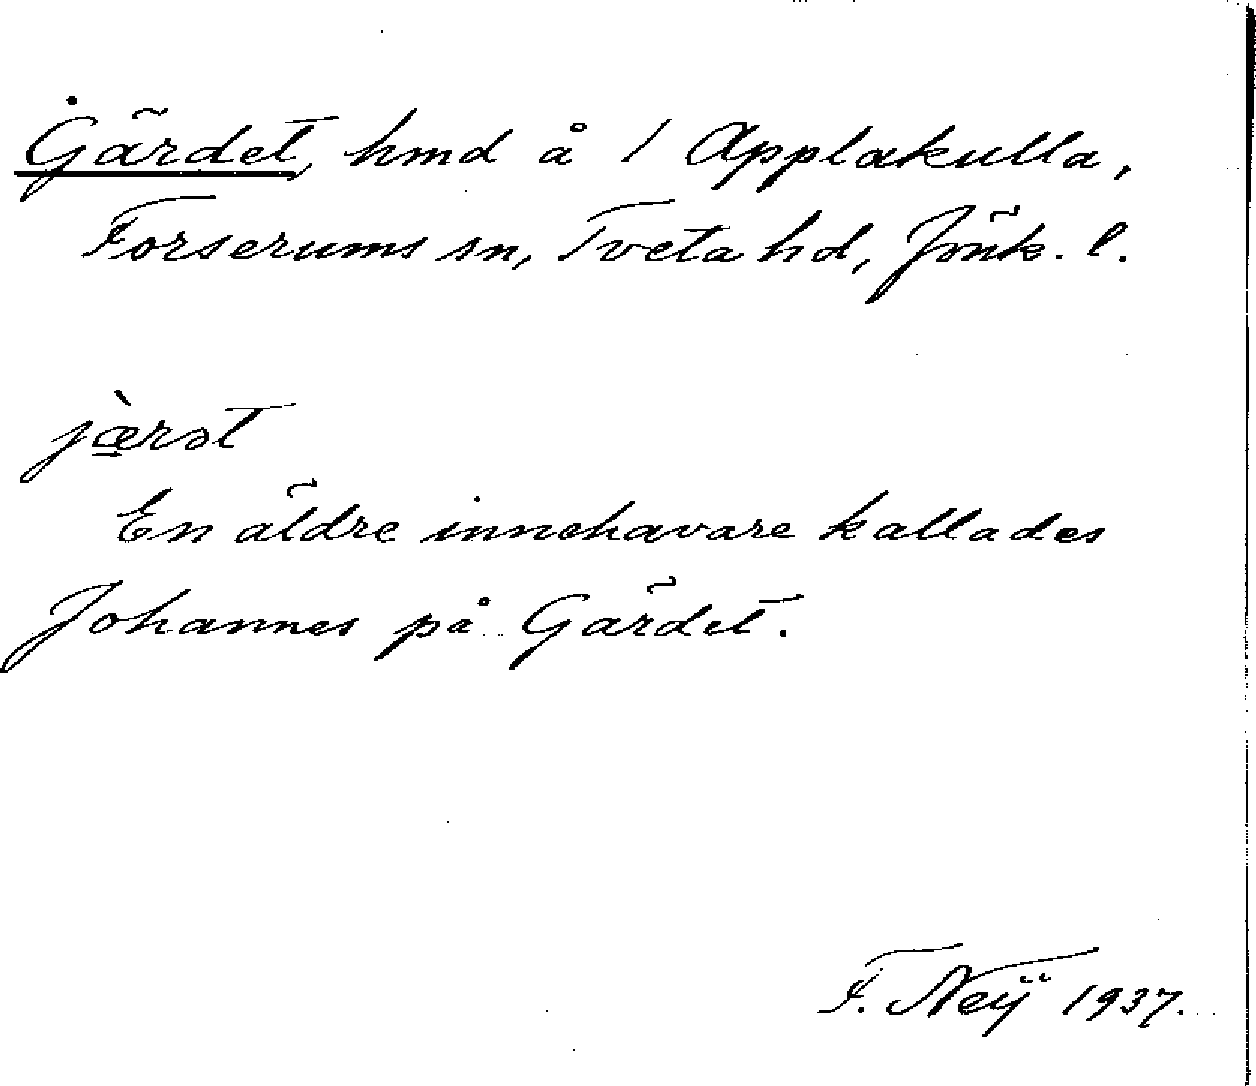 Gärdet, hmd å 1 Applakulla,
Forserums sn, Tveta hd, Jönk. l.
jæ̀rət
En äldre innehavare kallades
Johannes på Gärdet.
F. Neÿ 1937.